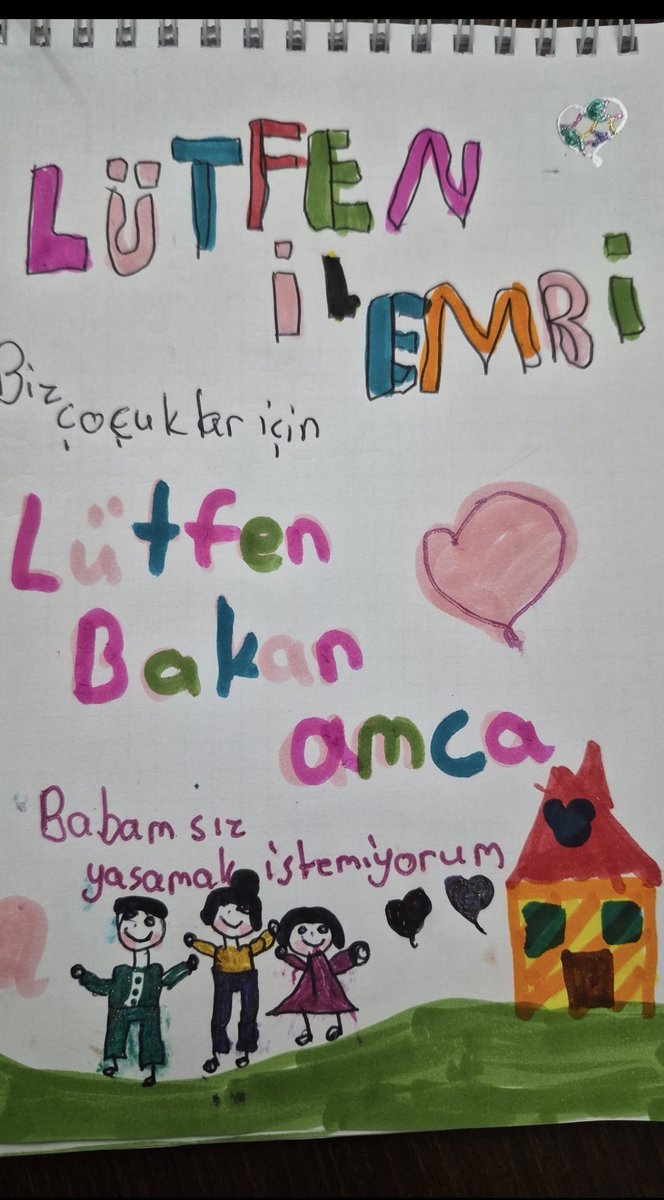 LÜTFEN
İL EMRİ
Biz çoçuklar için
Lütfen
Bakan
amca
Babam sız
yasamak istemiyorum